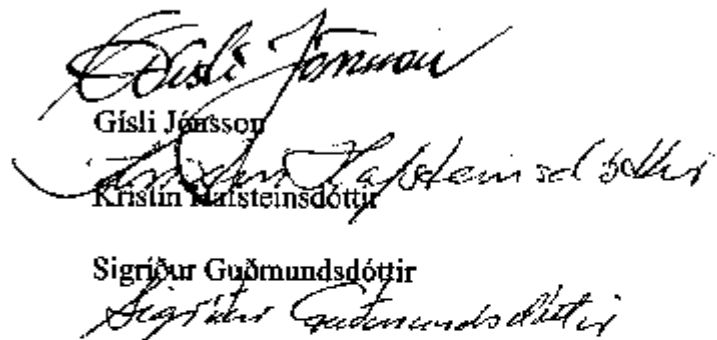 Gísli Jónsson
Gísli Jónsson
Kristín Hafsteinsdóttir
Kristín Hafsteinsdóttir
Sigríður Guðmundsdóttir
Sigríður Guðmundsdóttir